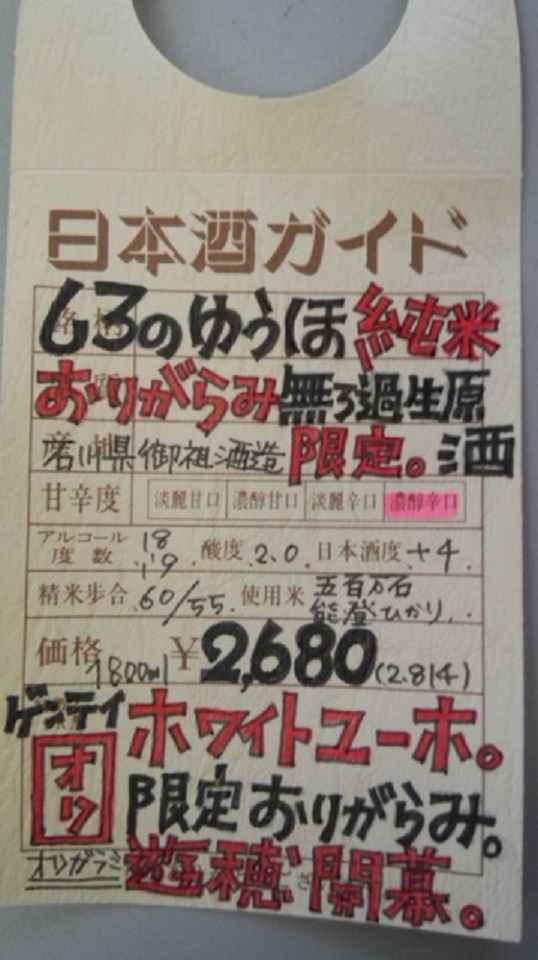 日本酒ガイド
63のゆうほ純米
おりがらみ無ろ過生原
石川県御祖酒造 限定。酒
甘辛度 淡麗甘口 濃醇甘口 淡麗辛口 濃醇辛口
アルコール度数 18 19 酸度 2.0 日本酒度 +4
精米歩合 60/55 使用米 五百万石
能登ひかり
価格 1800ml ¥2,680(2.814)
ゲンテイ ホワイトユーホ。
オリ 限定おりがらみ。
オリガラミ 遊穂 開幕。